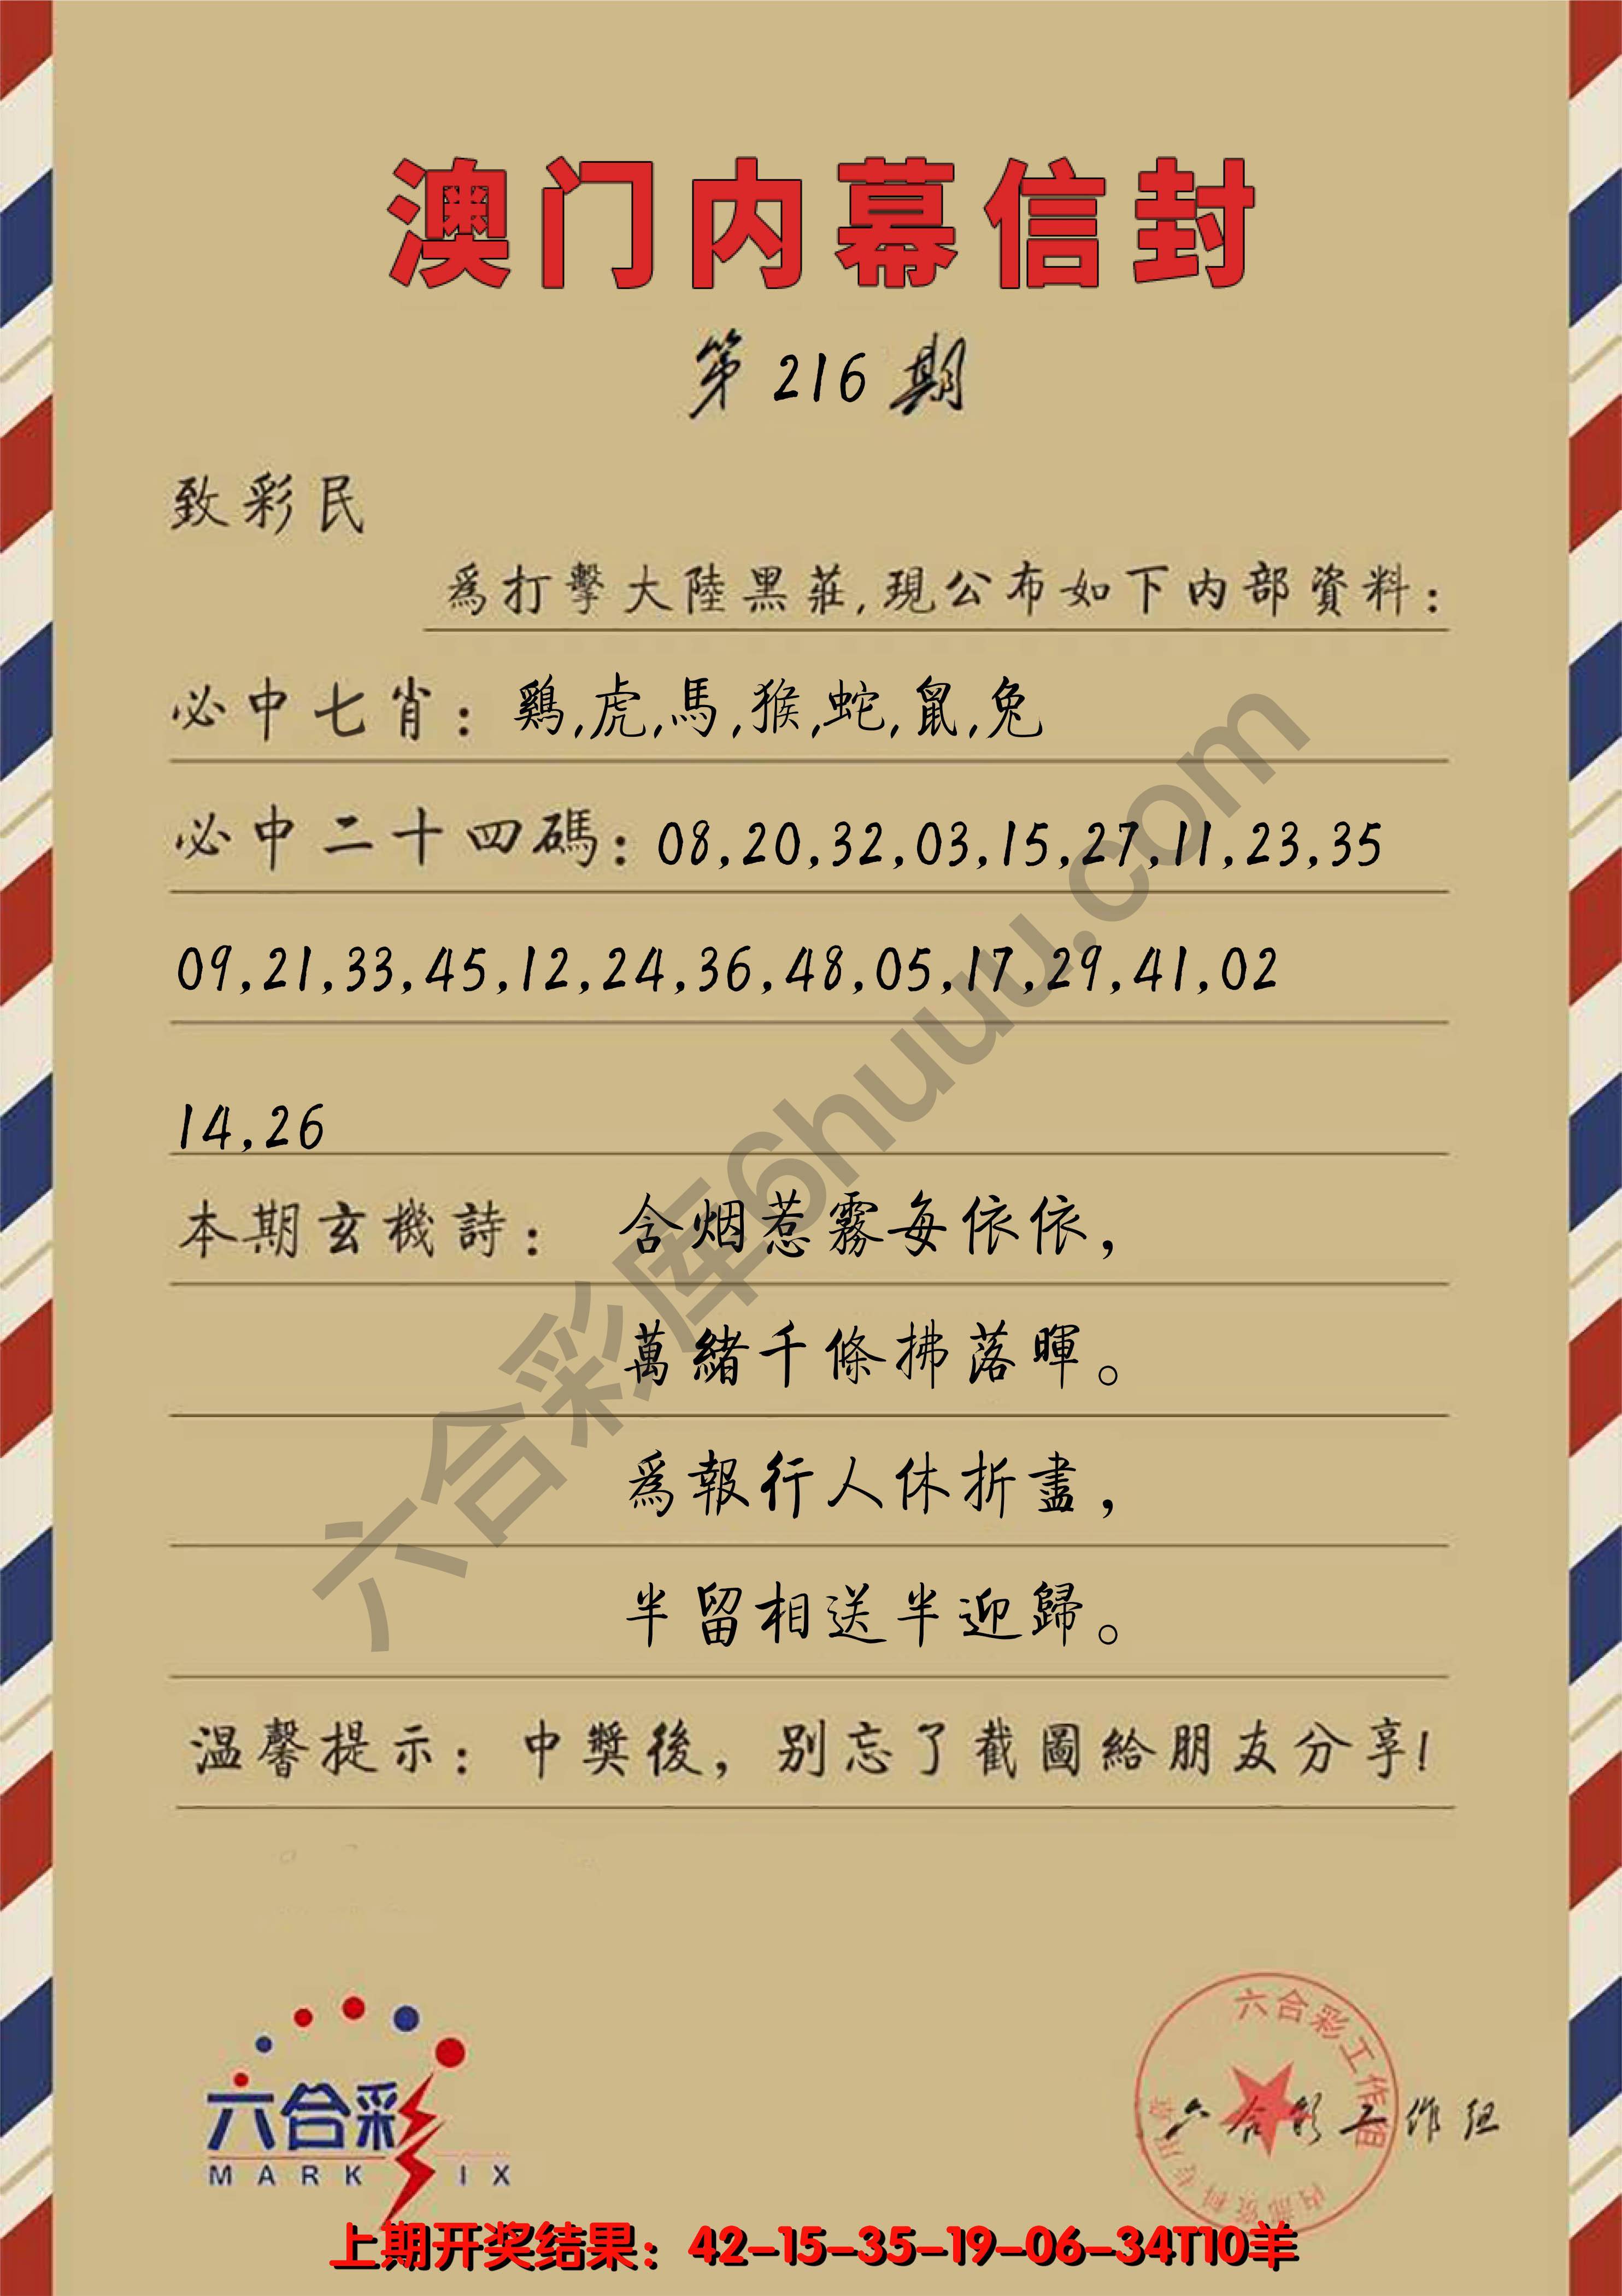 澳门内幕信封
第 216 期
致彩民
爲打擊大陸黑莊,現公布如下内部資料:
必中七肖: 鷄,虎,馬,猴,蛇,鼠,兔
必中二十四碼: 08,20,32,03,15,27,11,23,35
09,21,33,45,12,24,36,48,05,17,29,41,02
14,26
本期玄機詩: 含烟惹霧每依依,
萬緒千條拂落暉。
爲報行人休折盡,
半留相送半迎歸。
温馨提示: 中獎後, 别忘了截圖給朋友分享!
六合彩库6huuu.com
六合彩
MARK IX
六合彩工作组
内部资料专用章
六合彩工作组
上期开奖结果: 42-15-35-19-06-34T10羊